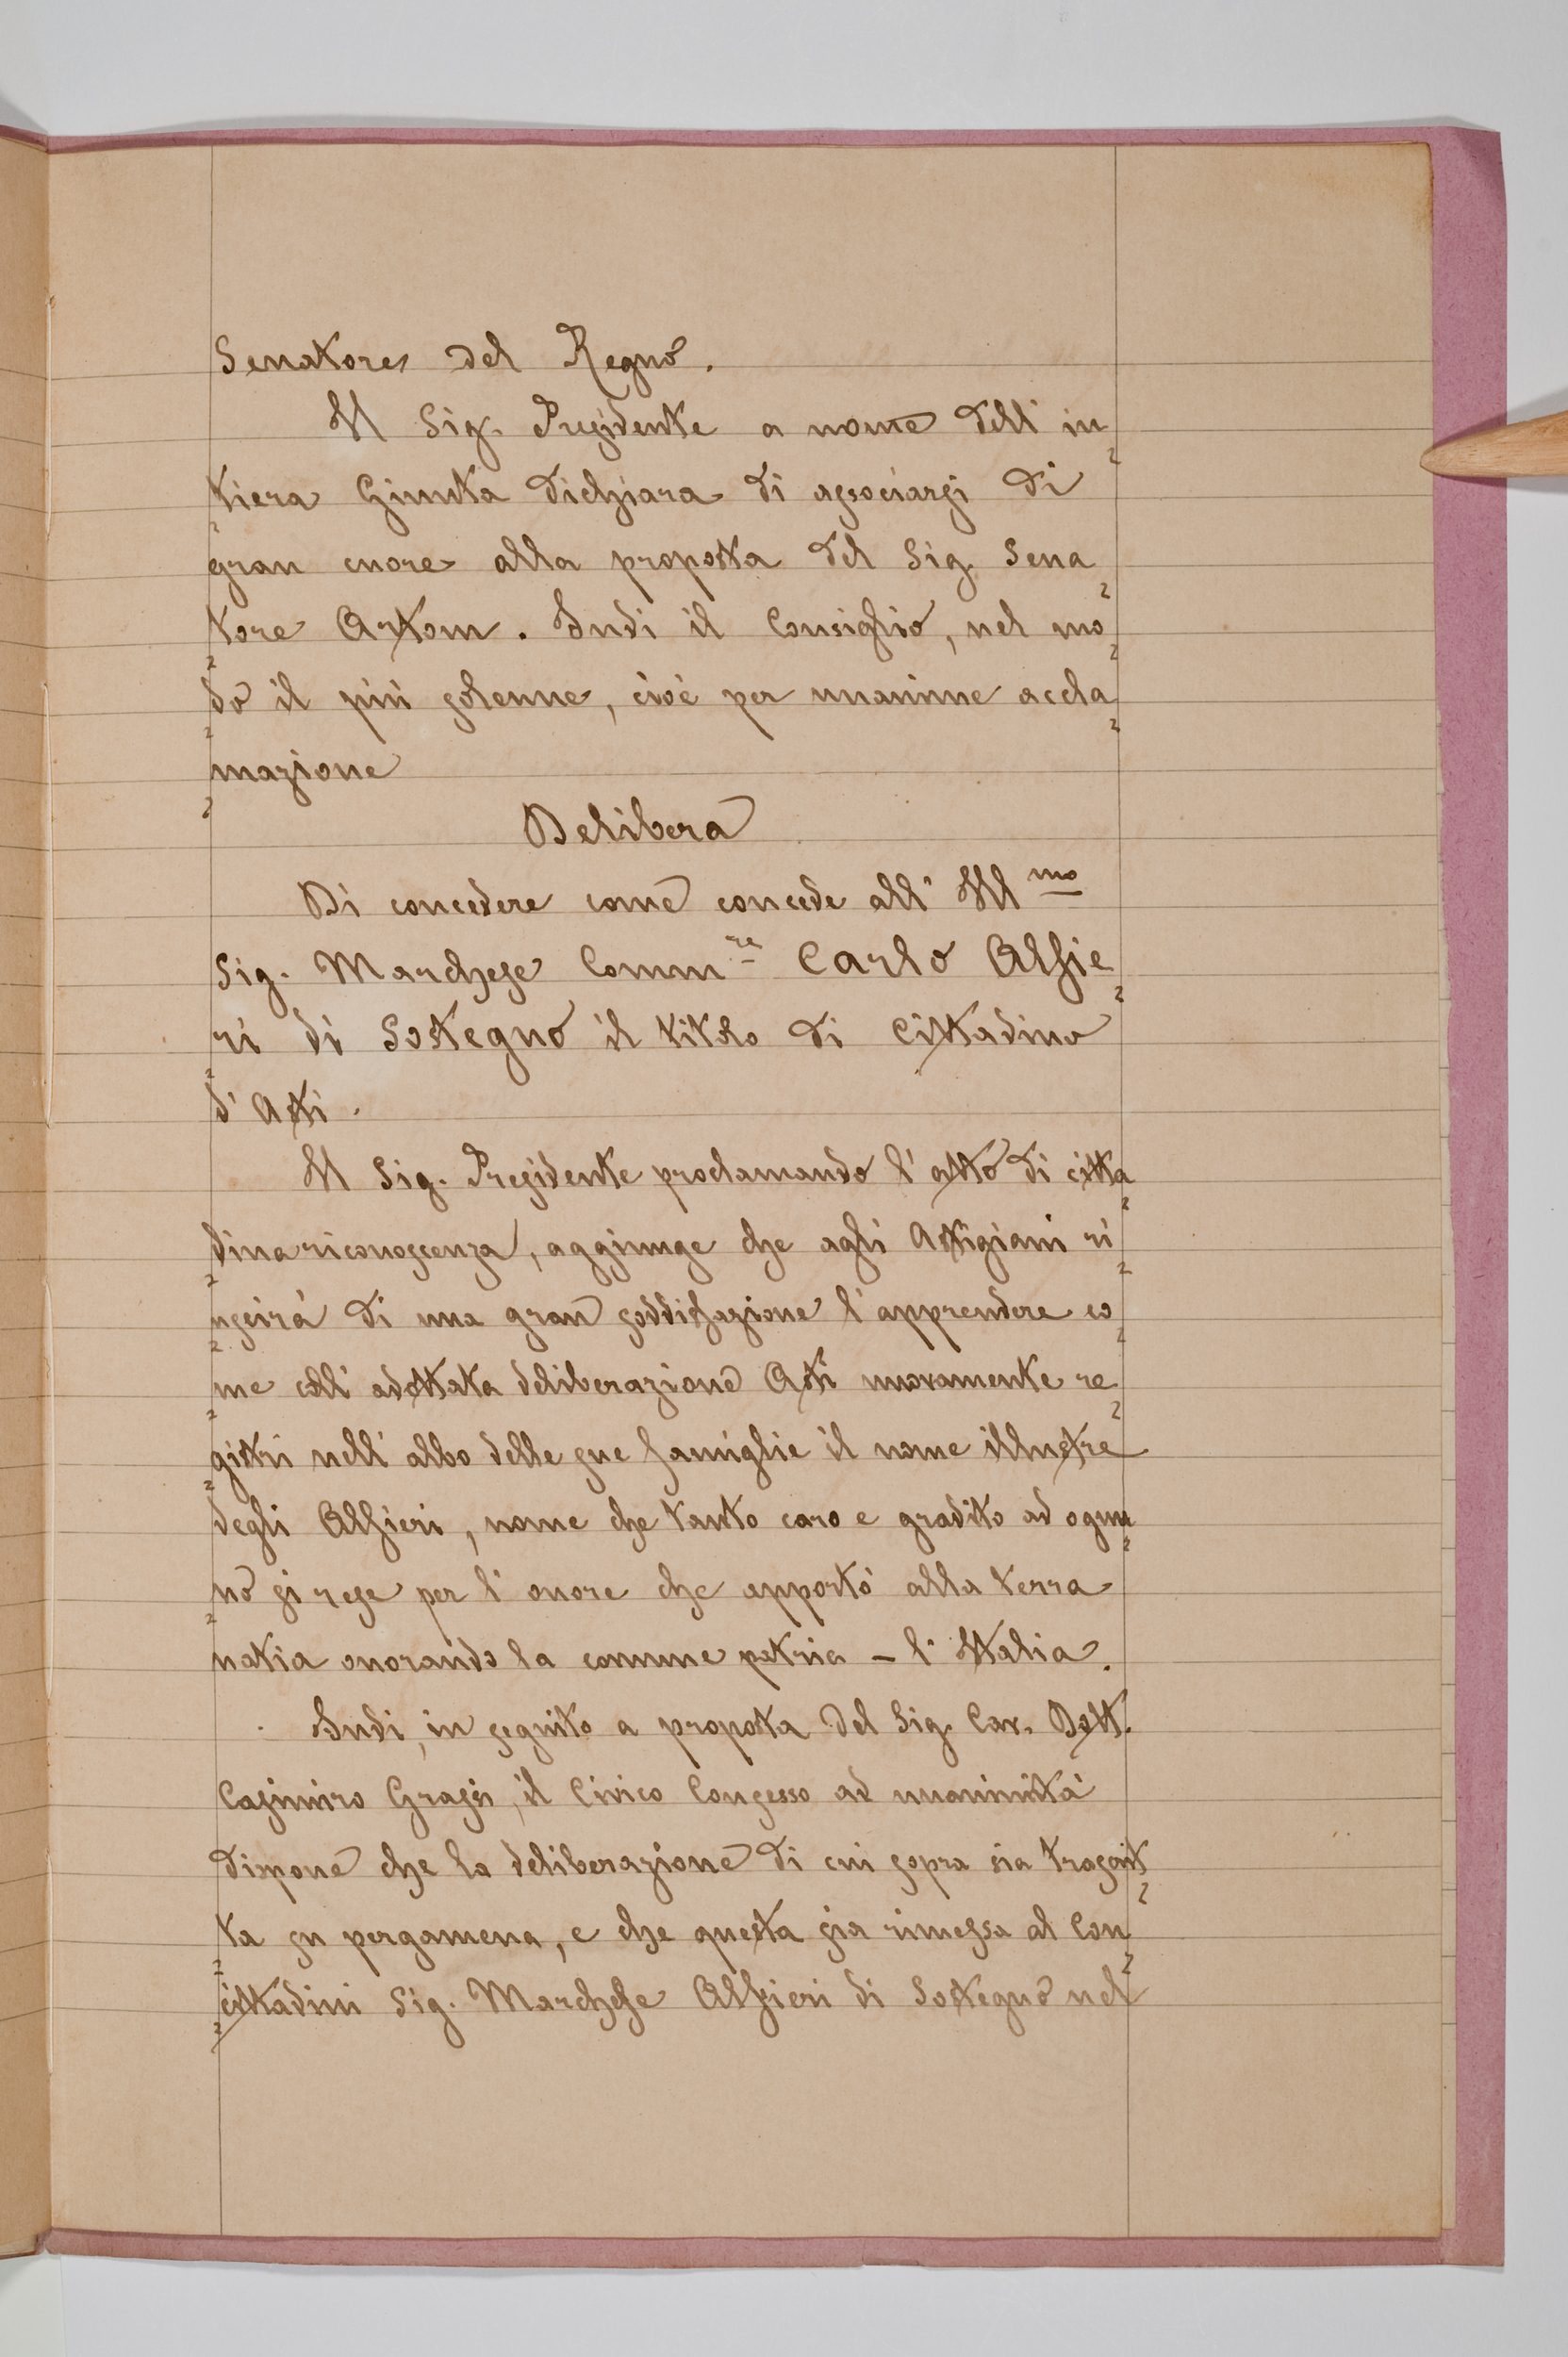 Senatore del Regno.
Il Sig. Presidente a nome dell'in
tiera Giunta dichiara di associarsi di
gran cuore alla proposta del Sig. Sena
tore Artom. Indi il Consiglio, nel mo
do il più solenne, cioè per unanime accla
mazione
Delibera
Di concedere come concede all'Ill mo
Sig. Marchese Comm re Carlo Alfie
ri di Sostegno il titolo di Cittadino
d'Asti.
Il Sig. Presidente proclamando l'atto di citta
dina riconoscenza, aggiunge che agli Astigiani ri
uscirà di una gran soddisfazione l'apprendere co
me coll'adottata deliberazione Asti nuovamente re
gistri nell'albo delle sue famiglie il nome illustre
degli Alfieri, nome che tanto caro e gradito ad ognu
no si rese per l'onore che apportò alla terra
natia onorando la comune patria – l'Italia.
Indi, in seguito a proposta del Sig. Cav. Dott.
Casimiro Grassi, il Civico Consesso ad unanimità
dispone che la deliberazione di cui sopra sia trascrit
ta su pergamena, e che questa sia rimessa al Con
cittadini Sig. Marchese Alfieri di Sostegno nel